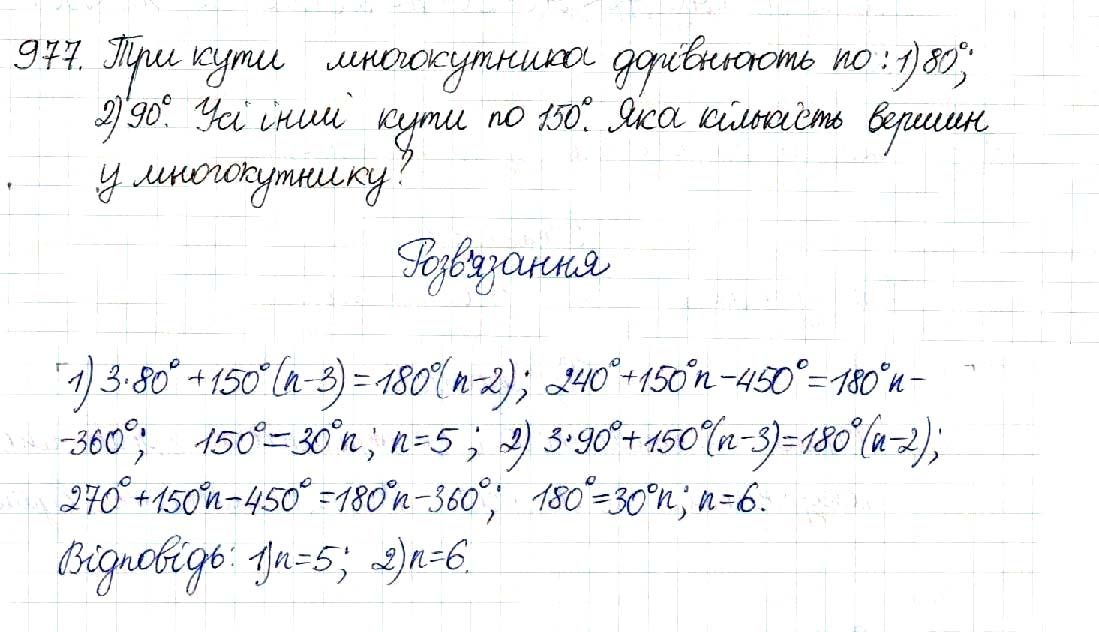 977. Три кути многокутника дорівнюють по: 1) 80°;
2) 90°. Усі інші кути по 150°. Яка кількість вершин
у многокутнику?
Розв'язання
1) 3·80° + 150°(n-3) = 180°(n-2); 240° + 150°n - 450° = 180°n -
-360°; 150° = 30°n; n = 5; 2) 3·90° + 150°(n-3) = 180°(n-2);
270° + 150°n - 450° = 180°n - 360°; 180° = 30°n; n = 6.
Відповідь: 1) n = 5; 2) n = 6.